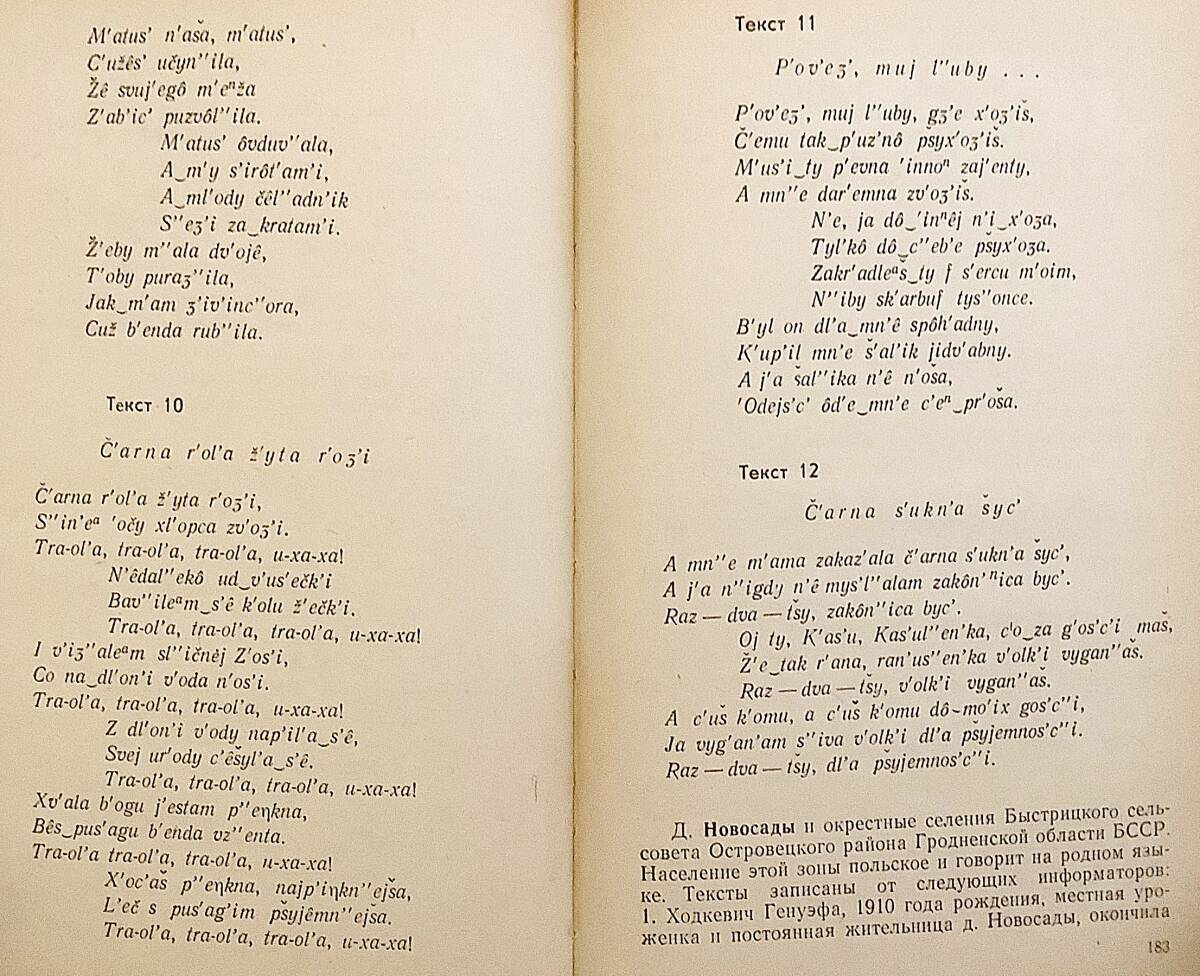 M'atus' n'aša, m'atus',
C'užês' učyn''ila,
Žê svuj'egô m'eⁿža
Z'ab'ic' puzvôl''ila.
M'atus' ôvduv''ala,
A‿m'y s'irôt'am'i,
A‿ml'ody čêl''adn'ik
S''eʒ'i za‿kratam'i.
Ž'eby m''ala dv'ojê,
T'oby puraʒ''ila,
Jak‿m'am ʒ'iv'inc''ora,
Cuž b'enda rub''ila.
Текст 10
Č'arna r'ol'a ž'yta r'oʒ'i
Č'arna r'ol'a ž'yta r'oʒ'i,
S''in'eᵃ 'očy xl'opca zv'oʒ'i.
Tra-ol'a, tra-ol'a, tra-ol'a, u-xa-xa!
N'êdal''ekô ud‿v'us'ečk'i
Bav''ileᵃm‿s'ê k'olu ž'ečk'i.
Tra-ol'a, tra-ol'a, tra-ol'a, u-xa-xa!
I v'iʒ''aleᵃm sl''ičnėj Z'os'i,
Co na‿dl'on'i v'oda n'os'i.
Tra-ol'a, tra-ol'a, tra-ol'a, u-xa-xa!
Z dl'on'i v'ody nap'il'a‿s'ê,
Svej ur'ody c'êšyl'a‿s'ê.
Tra-ol'a, tra-ol'a, tra-ol'a, u-xa-xa!
Xv'ala b'ogu j'estam p''eηkna,
Bês‿pus'agu b'enda vz''enta.
Tra-ol'a tra-ol'a, tra-ol'a, u-xa-xa!
X'oc'aš p''eηkna, najp'iηkn''ejša,
L'eč s pus'ag'im pšyjêmn''ejša.
Tra-ol'a, tra-ol'a, tra-ol'a, u-xa-xa!
Текст 11
P'ov'eʒ', muj l''uby ...
P'ov'eʒ', muj l''uby, gʒ'e x'oʒ'iš,
Č'emu tak‿p'uz'nô pšyx'oʒ'iš.
M'us'i‿ty p'evna 'innoⁿ zaj'enty,
A mn''e dar'emna zv'oʒ'iš.
N'e, ja dô‿'inⁿêj n'i‿x'oʒa,
Tyl'kô dô‿c''eb'e pšyx'oʒa.
Zakr'adleᵃš‿ty f s'ercu m'oim,
N''iby sk'arbuf tys''once.
B'yl on dl'a‿mn'ê spôh'adny,
K'up'il mn'e š'al'ik jidv'abny.
A j'a šal''ika n'ê n'oša,
'Odejs'c' ôd'e‿mn'e c'eⁿ‿pr'oša.
Текст 12
Č'arna s'ukn'a šyc'
A mn''e m'ama zakaz'ala č'arna s'ukn'a šyc',
A j'a n''igdy n'ê mys'l''alam zakôn'ⁿica byc'.
Raz — dva — tšy, zakôn''ica byc'.
Oj ty, K'as'u, Kas'ul''en'ka, c'o‿za g'os'c'i maš,
Ž'e‿tak r'ana, ran'us''en'ka v'olk'i vygan''aš.
Raz — dva — tšy, v'olk'i vygan''aš.
A c'uš k'omu, a c'uš k'omu dô‿mo'ix gos'c''i,
Ja vyg'an'am s''iva v'olk'i dl'a pšyjemnos'c''i.
Raz — dva — tšy, dl'a pšyjemnos'c''i.
Д. Новосады и окрестные селения Быстрицкого сель-
совета Островецкого района Гродненской области БССР.
Население этой зоны польское и говорит на родном язы-
ке. Тексты записаны от следующих информаторов:
1. Ходкевич Генуэфа, 1910 года рождения, местная уро-
женка и постоянная жительница д. Новосады, окончила
183